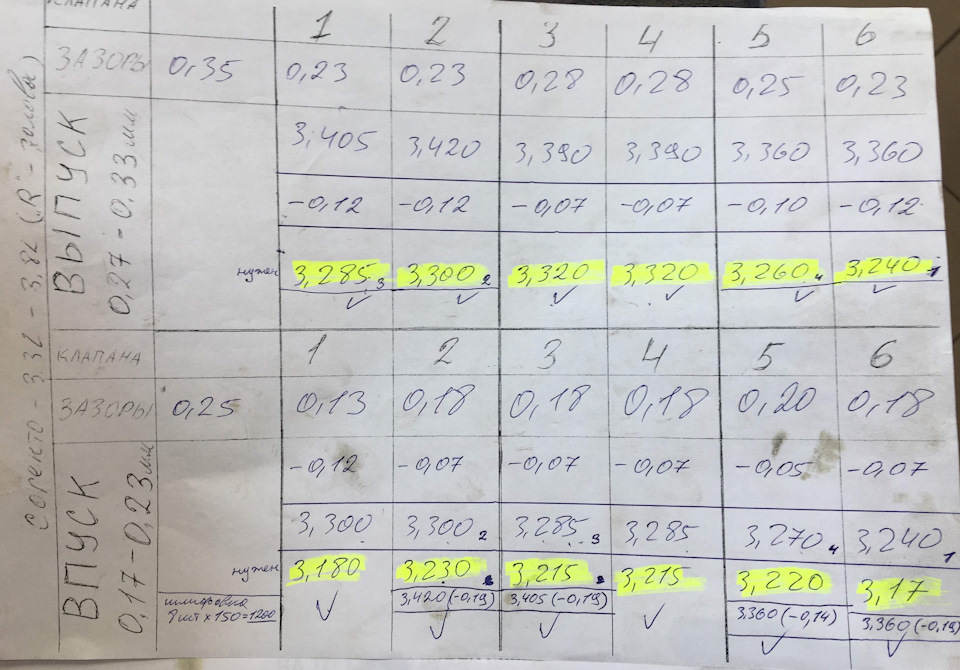 КЛАПАНА 1 2 3 4 5 6
ЗАЗОРЫ 0,35 0,23 0,23 0,28 0,28 0,25 0,23
ВЫПУСК
0,27-0,33 мм
3,405 3,420 3,390 3,390 3,360 3,360
-0,12 -0,12 -0,07 -0,07 -0,10 -0,12
нужен 3,285 3 3,300 2 3,320 3,320 3,260 4 3,240 1
КЛАПАНА 1 2 3 4 5 6
ЗАЗОРЫ 0,25 0,13 0,18 0,18 0,18 0,20 0,18
ВПУСК
0,17-0,23 мм
-0,12 -0,07 -0,07 -0,07 -0,05 -0,07
3,300 3,300 2 3,285 3 3,285 3,270 4 3,240 1
нужен 3,180 3,230 3,215 3,215 3,220 3,17
шлифовка
3,420 (-0,19) 3,405 (-0,19) 3,360 (-0,14) 3,360 (-0,19)
шт x 150 = 1260
Соренто - 3.3L - 3,8L ("R" - голова)